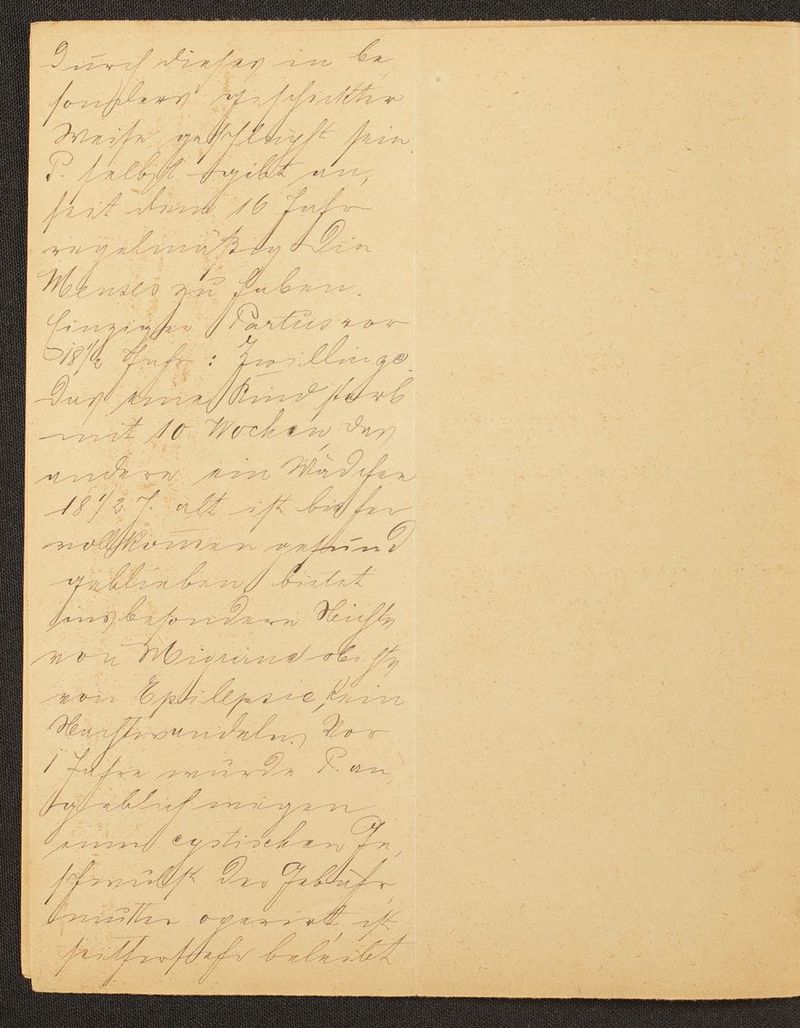 Durch dieses in be
sonders geschickter
Weise
P. selbst gibt an,
seit dem 16 Jahr
regelmäßig die
Menses zu haben.
Einziger Partus vor
18 1/2 Jahr: Zwillinge.
Das eine Kind starb
mit 10 Wochen, das
andere ein Mädchen
18 1/2 J. alt ist bisher
vollkommen gesund
geblieben, bietet
insbesondere Nichts
von Migraine
von Epilepsie, kein
Nachtwandeln. Vor
1 Jahre wurde P. an
geblich wegen
einer cystischen Ge
schwulst der Gebähr
mutter operirt, ist
seither sehr beleibt